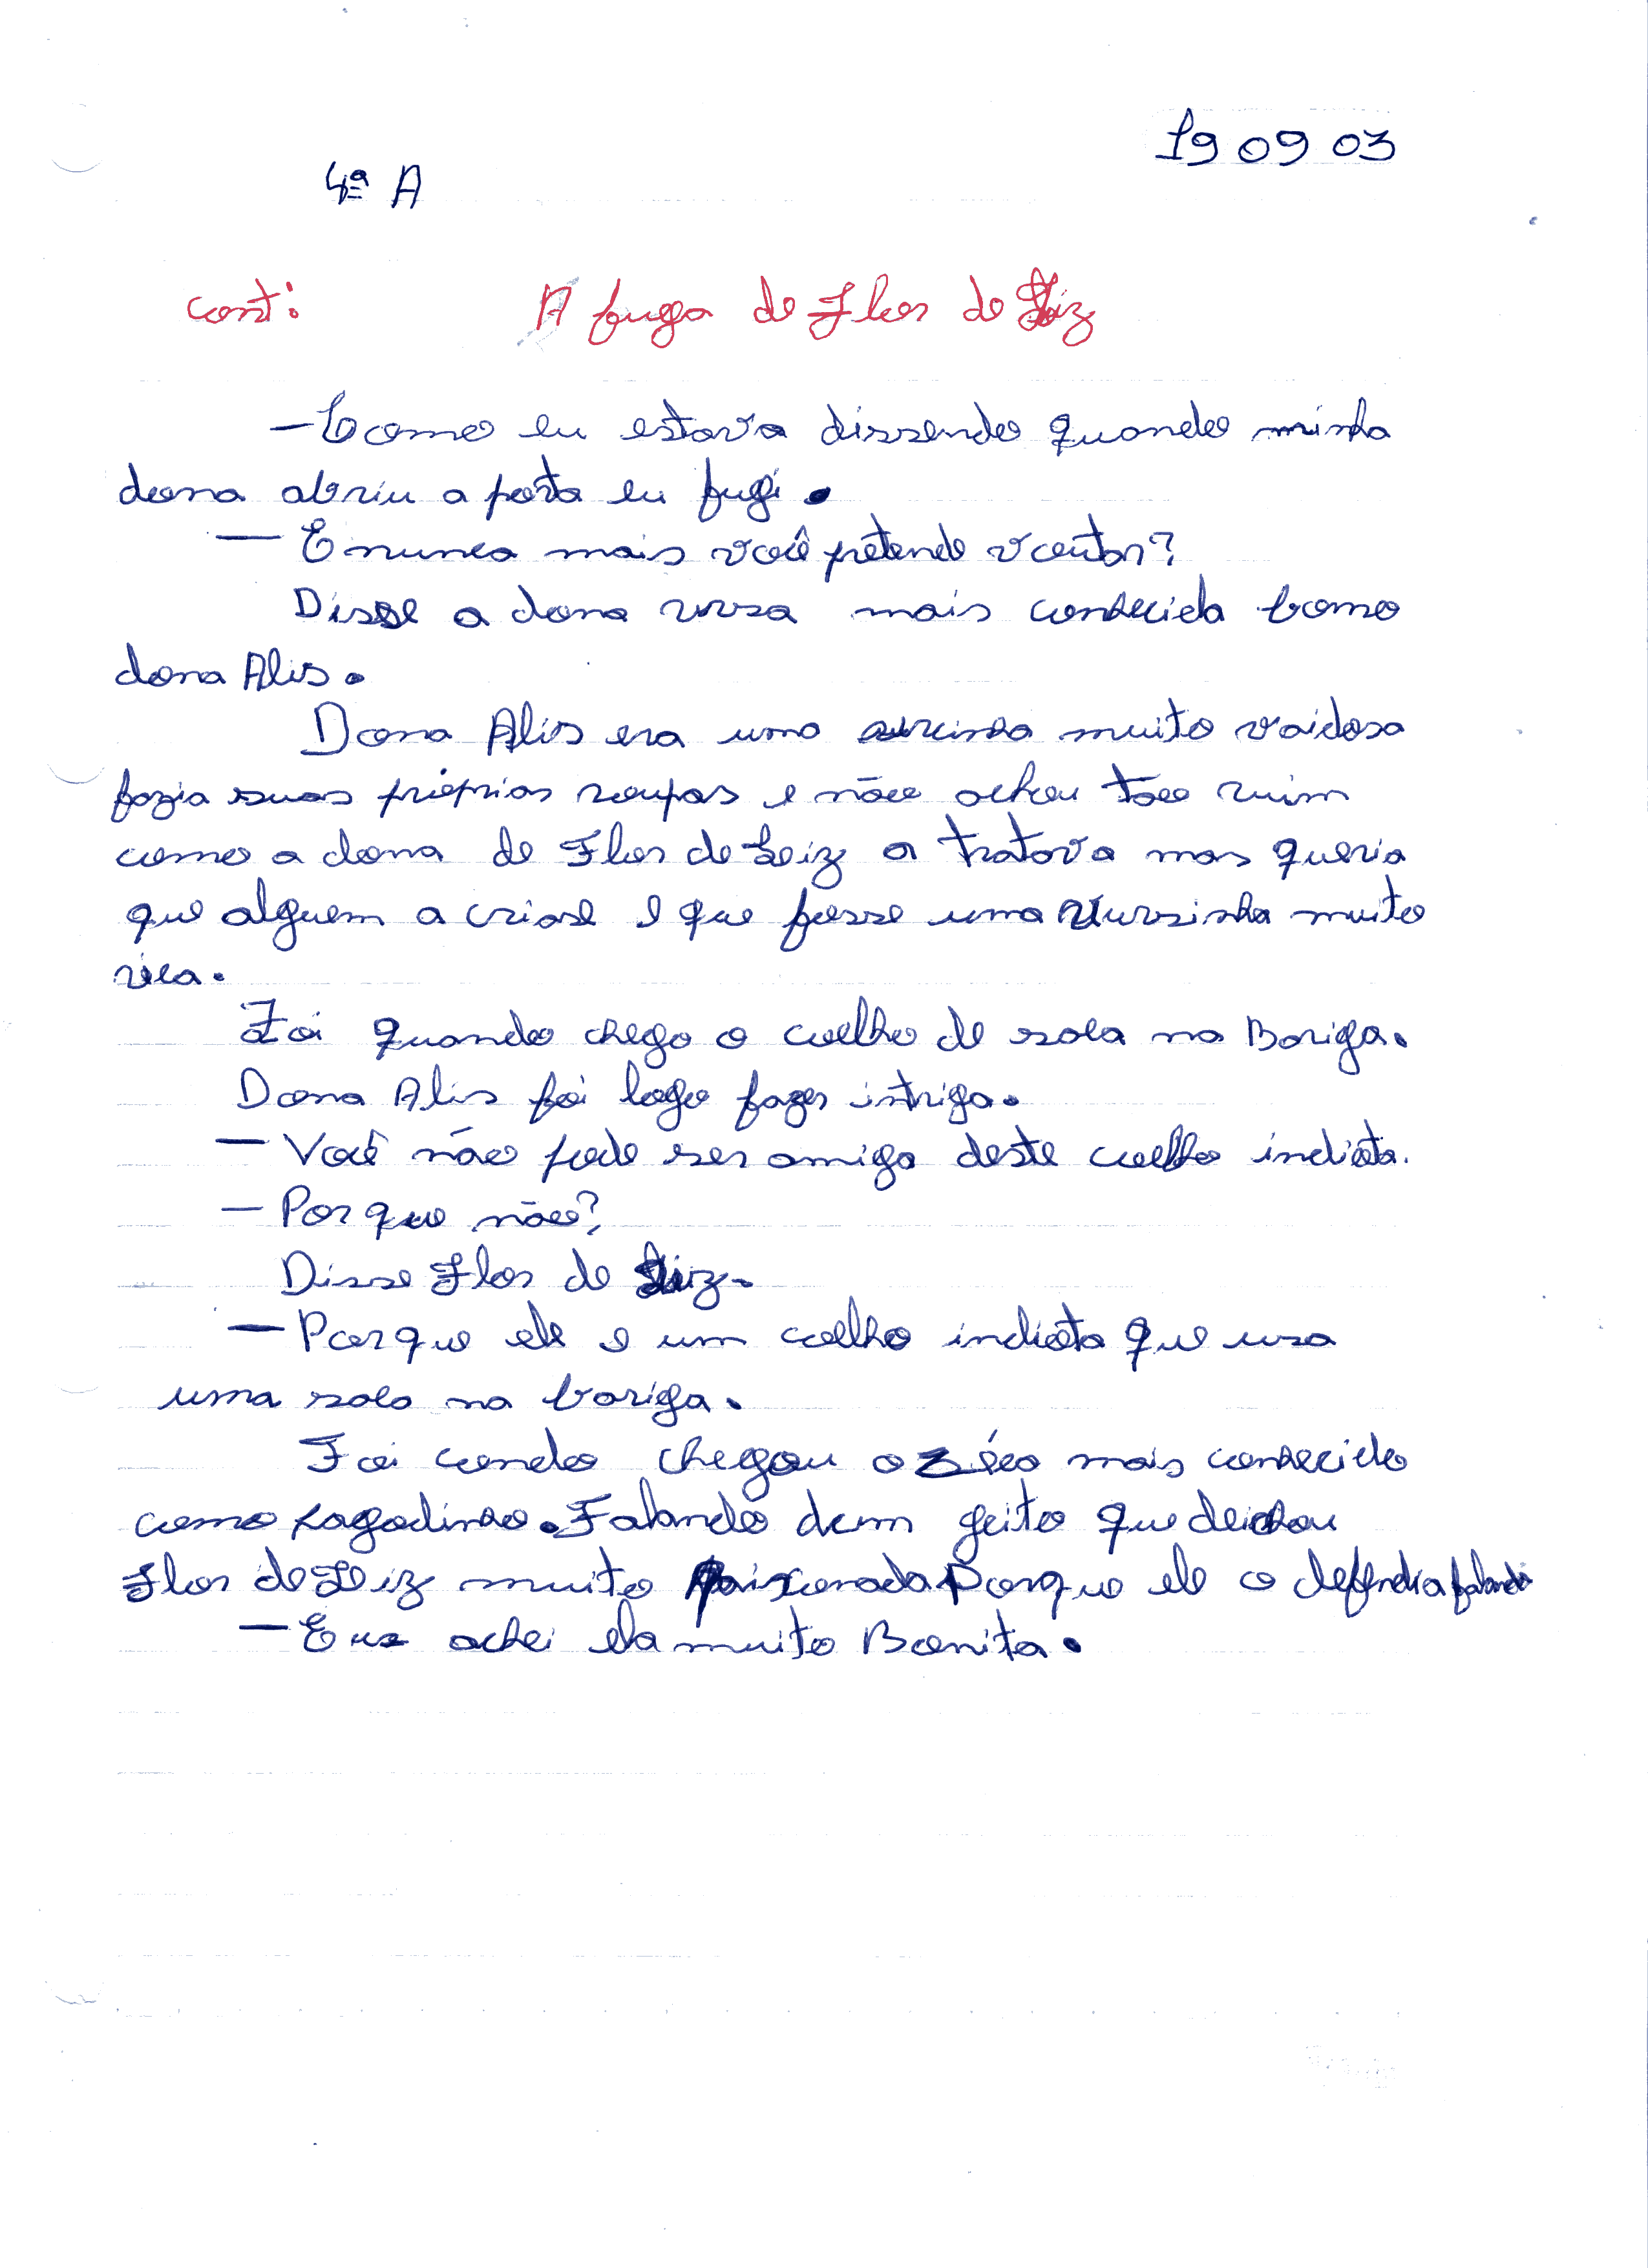 19 09 03
4ª A
cont: A fuga de Flor de Liz
— E como eu estava dissendo quando minha
dona abriu a porta eu fugi.
— E nunca mais você pretende voutar?
Disse a dona urssa mais conhecida como
dona Alis.
Dona Alis era uma urcinha muito vaidosa
fazia suas próprias roupas e não achou tão ruim
como a dona de Flor de Leiz a tratava mas queria
que alguem a criase e que fosse uma ursinha muito
rica.
Foi quando chego o coelho de sola na Bariga.
Dona Alis foi logo fazer intriga.
— Você não pode ser amiga deste coelho indiota.
— Por que não?
Disse Flor de Liz.
— Porque ele e um coelho indiota que usa
uma sola na bariga.
Foi cando chegou o Zéco mais conhecido
como sagadinho. Falando dum geito que deichou
Flor de Leiz muito Apaixonada Porque ele a defendia falando
— Eu achei ela muito Bonita.